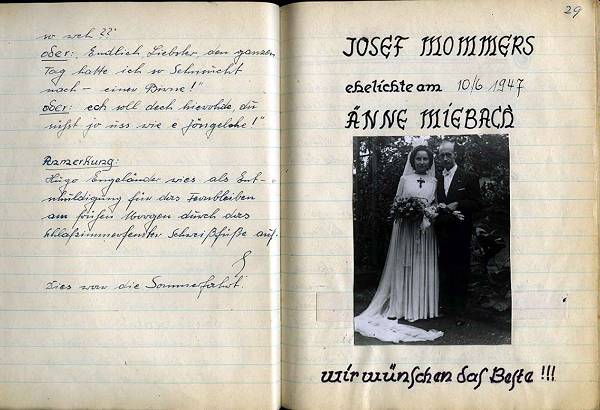 so weh ??"
oder: „Endlich Liebster, den ganzen
Tag hatte ich so Sehnsucht
nach - einer Birne!"
oder: ech soll dech hievolde, du
sühst jo uss wie e Jöngelche!"
Anmerkung:
Hugo Engeländer wies als Ent-
schuldigung für das Fernbleiben
am frühen Morgen durch das
Schlafzimmerfenster Schweißfüße auf.
Dies war die Sommerfahrt.
29
JOSEF MOMMERS
ehelichte am 10/6 1947
ÄNNE MIEBACH
wir wünschen das Beste !!!